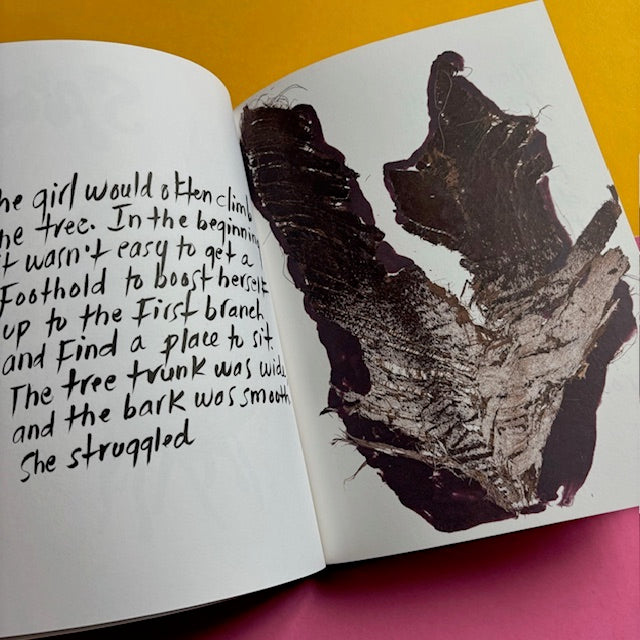 he girl would often climb
he tree. In the beginning
t wasn't easy to get a
foothold to boost herself
up to the first branch
and find a place to sit.
The tree trunk was wide
and the bark was smooth
She struggled